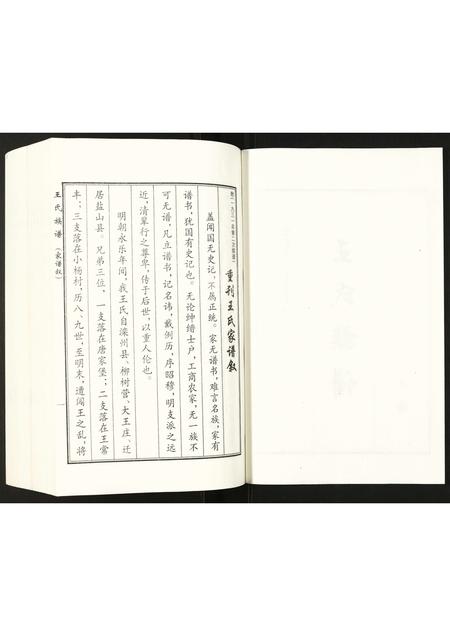 附：一九三一年第二次续谱
重刊王氏家谱叙
盖闻国无史记，不属正统。家无谱书，难言名族，家有
谱书，犹国有史记也。无论绅缙士户，工商农家，无一族不
可无谱，凡立谱书，记名讳，戴例历，序昭穆，明支派之远
近，清辈行之尊卑，传于后世，以重人伦也。
明朝永乐年间，我王氏自滦州县、柳树营、大王庄、迁
居盐山县。兄弟三位，一支落在唐家堡；二支落在王常
丰；三支落在小杨村，历八、九世，至明末，遭闯王之乱，将
王氏族谱（家谱叙）
一